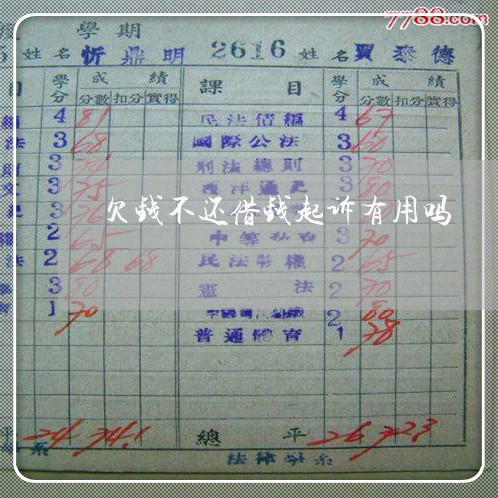 7788.com
學期
姓名 忻鼎明 2616 姓名 賈泰德
目 學分 成績 課目 學分 成績
分數 扣分 實得 分數 扣分 實得
4 81 民法債編 4 67
法 3 68 國際公法 3 60
則 3 刑法總則 3 70
3 75 西洋通史 3 80
3
欠钱不还借钱起诉有用吗
2 65 3 70
法 2 68 68 民法物權 2 65
3 80 憲法 2 70
1 70 2 80
普通體育 1 78
平 24 74.1 總平 26 72.3
系 法律學系